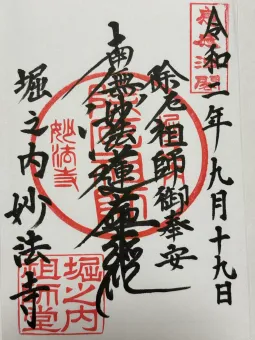 令和二年九月十九日
除厄祖師御奉安
南無妙法蓮華経
妙法寺
堀之内妙法寺
堀之内
祖師堂